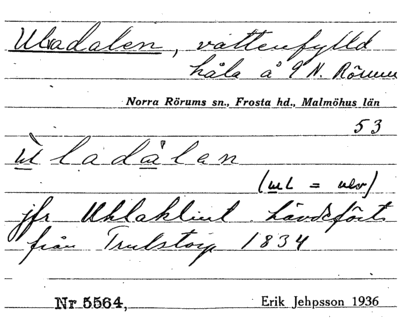 Uladalen, vattenfylld
håla å 9 N. Rörum
Norra Rörums sn., Frosta hd., Malmöhus län
53
ùladàlen
(ul = ulv)
jfr Uhlaklint hävdeförts
från Trulstorp 1834
Nr 5564,
Erik Jehpsson 1936